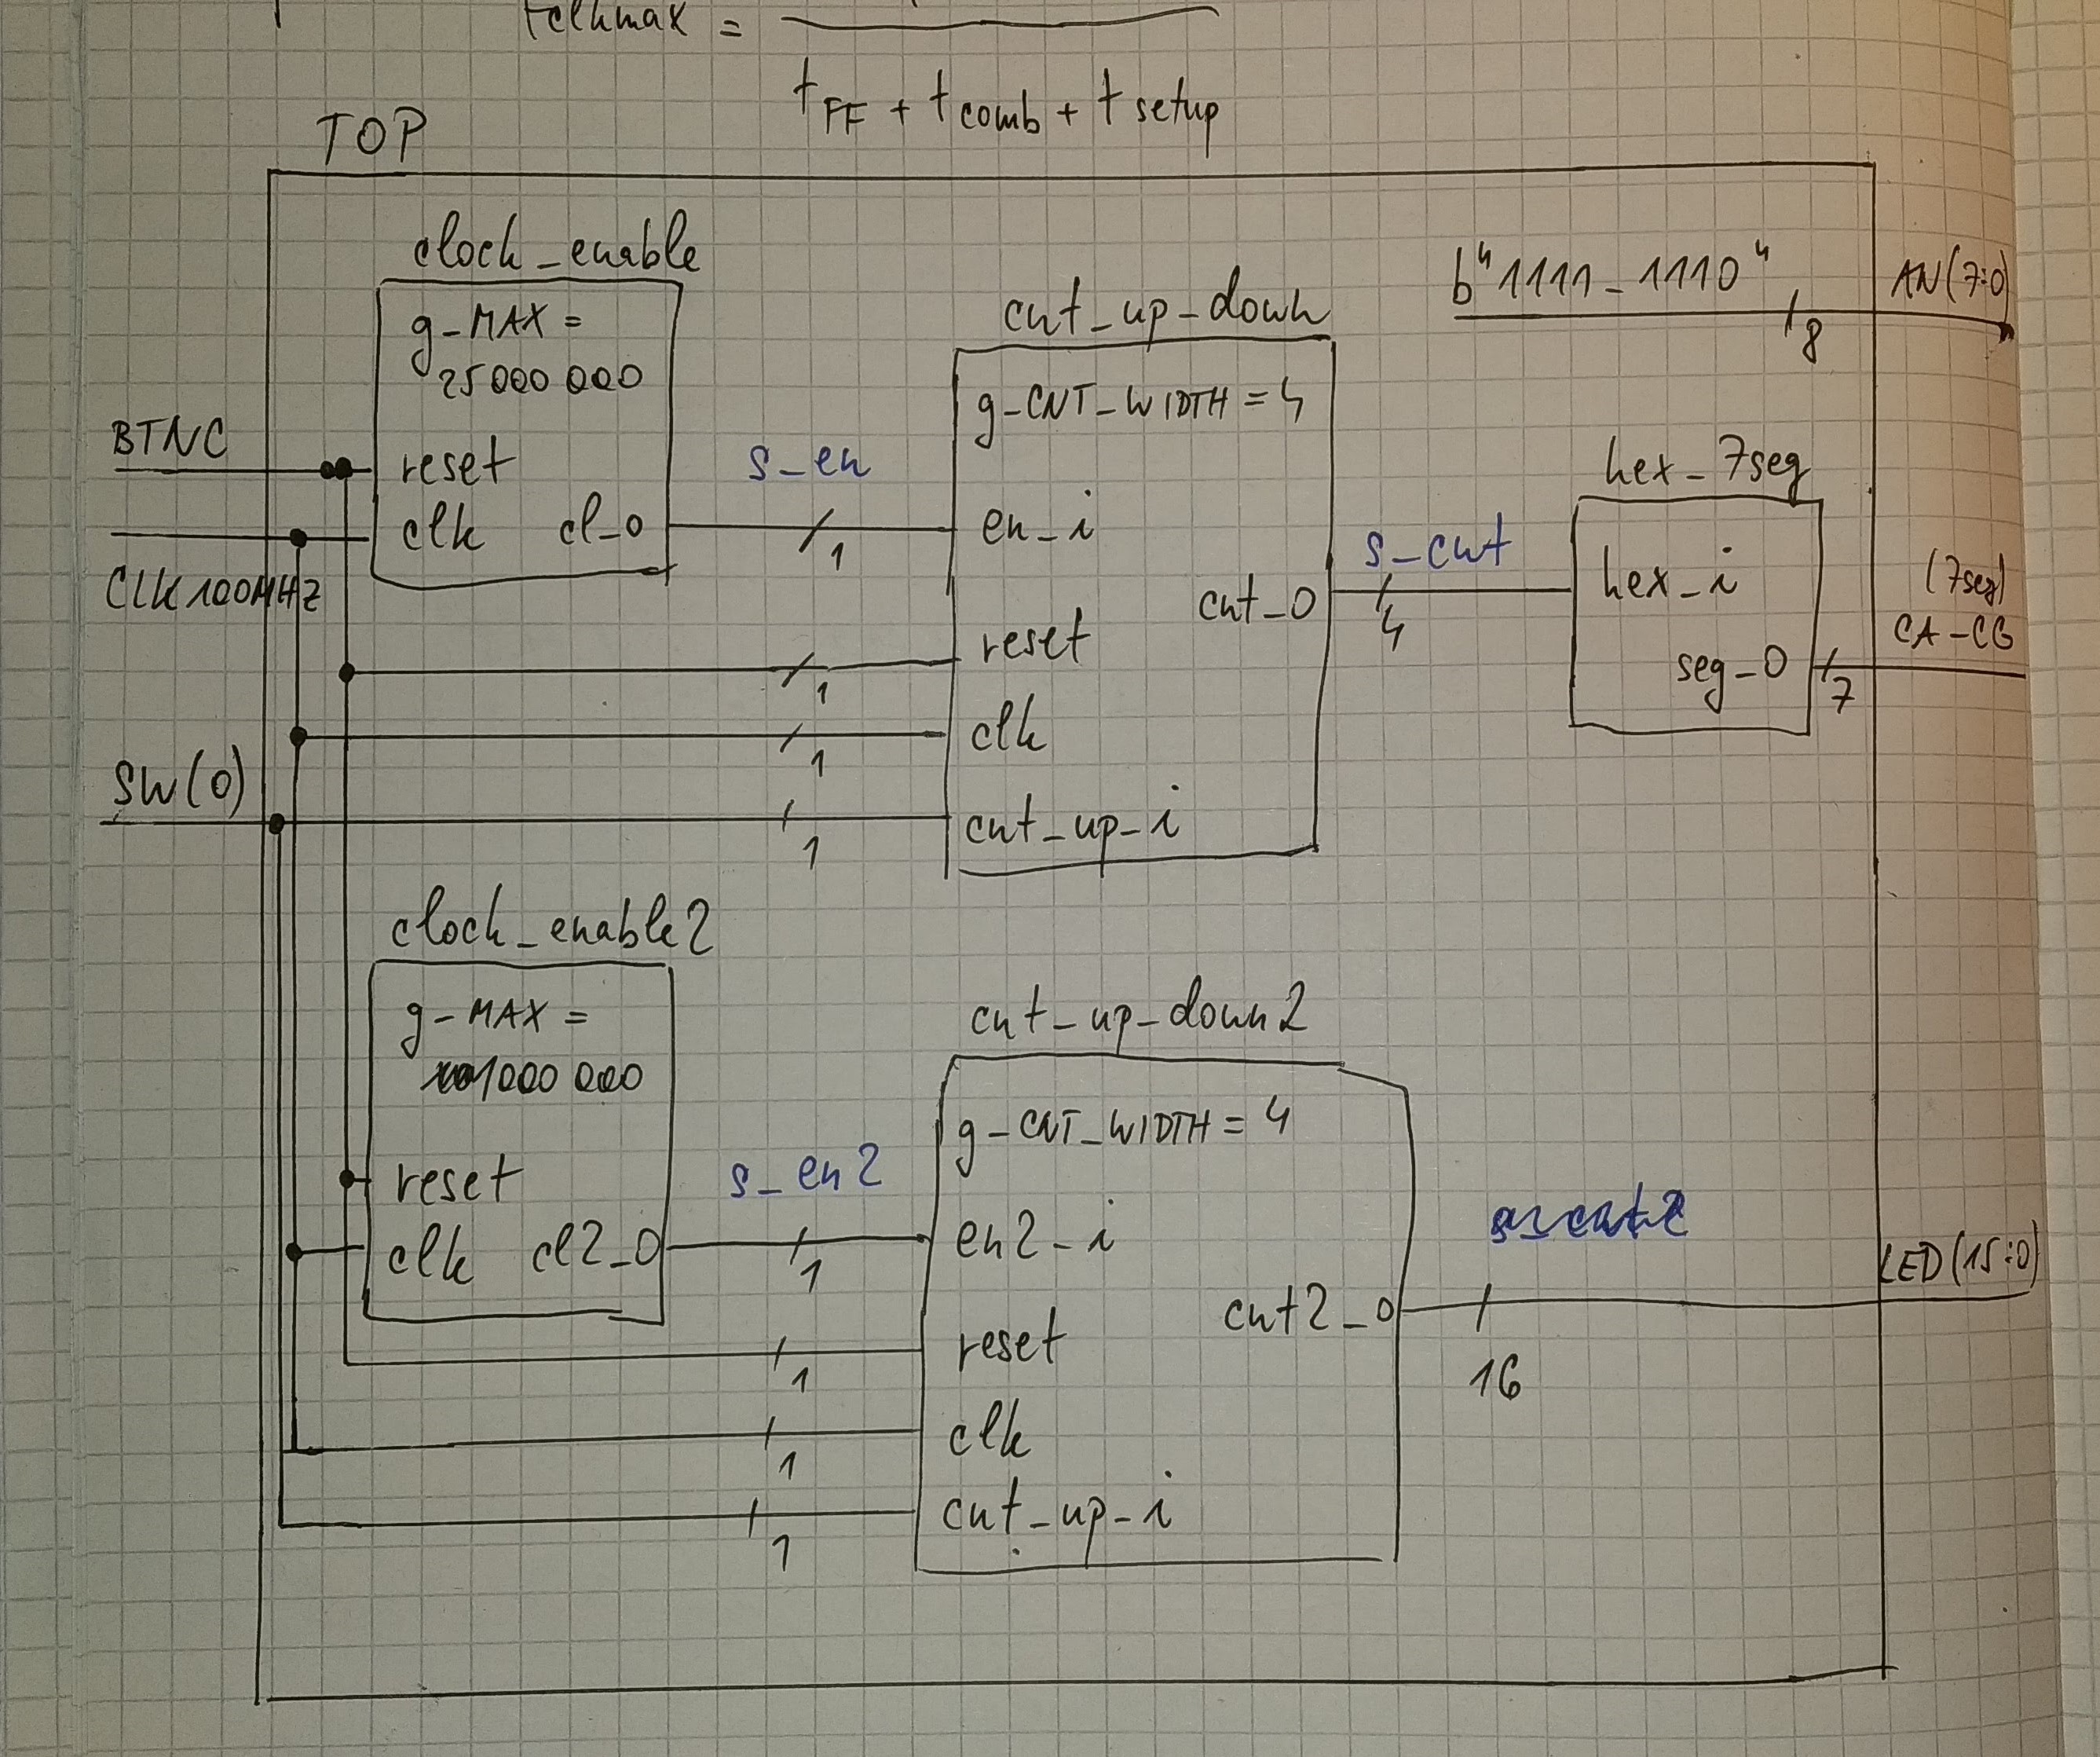 fclkmax =
tFF + tcomb + tsetup
TOP
clock_enable
g_MAX =
25000 000
BTNC
reset
clk cl_o
CLK100MHZ
s_en
1
cnt_up_down
g_CNT_WIDTH = 4
en_i
cnt_o
reset
1
clk
1
SW(0)
cnt_up_i
1
b"1111_1110"
8
AN(7:0)
s_cnt
4
hex_7seg
hex_i
seg_o
7
(7seg)
CA-CG
clock_enable2
g_MAX =
1000 000
reset
clk cl2_o
s_en2
1
cnt_up_down2
g_CNT_WIDTH = 4
en2_i
cnt2_o
reset
1
clk
1
cnt_up_i
1
16
LED(15:0)